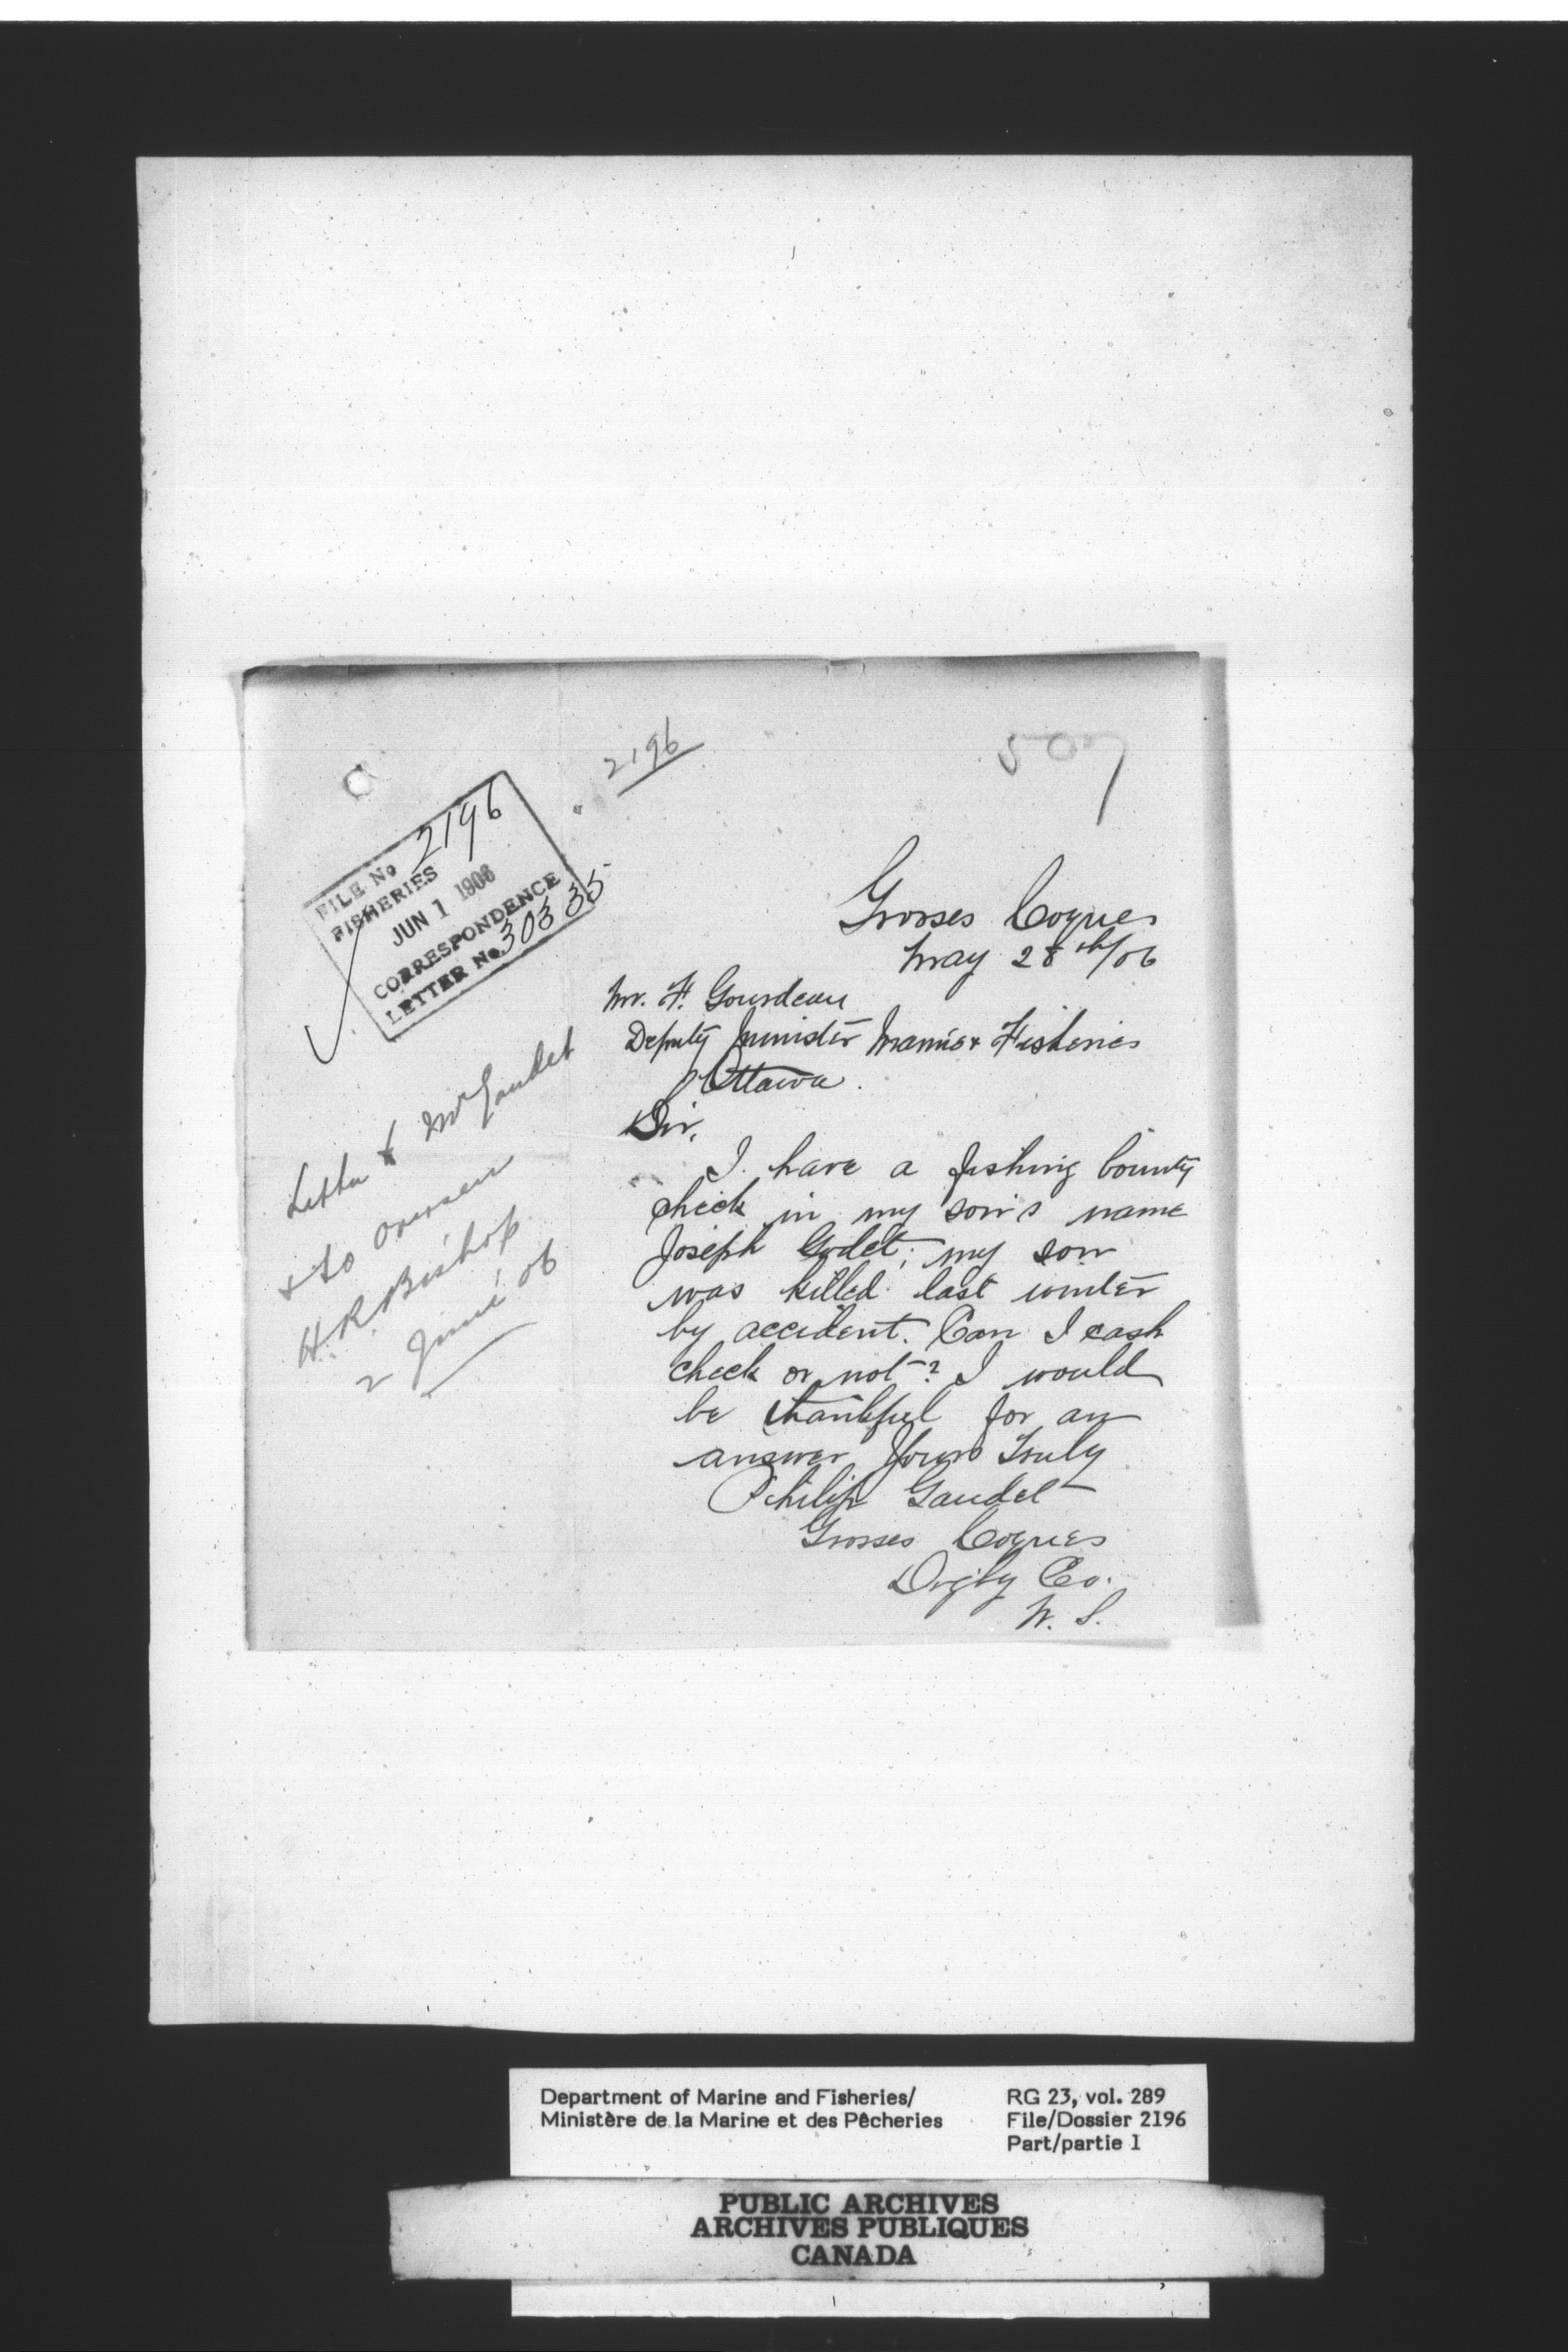 2196
507
FILE No 2196
FISHERIES
JUN 1 1906
CORRESPONDENCE
LETTER No 30335
Grosses Coques
May 28th/06
Mr. F. Gourdeau
Deputy Minister Marine & Fisheries
Ottawa.
Sir,
I have a fishing bounty
check in my son's name
Joseph Godet; my son
was killed last winter
by accident. Can I cash
check or not? I would
be thankful for an
answer Yours Truly
Philip Gaudet
Grosses Coques
Digby Co.
N. S.
Letter to Mr Gaudet
& to overseer
H. R. Bishop
2 June '06
Department of Marine and Fisheries/
Ministère de la Marine et des Pêcheries
RG 23, vol. 289
File/Dossier 2196
Part/partie 1
PUBLIC ARCHIVES
ARCHIVES PUBLIQUES
CANADA